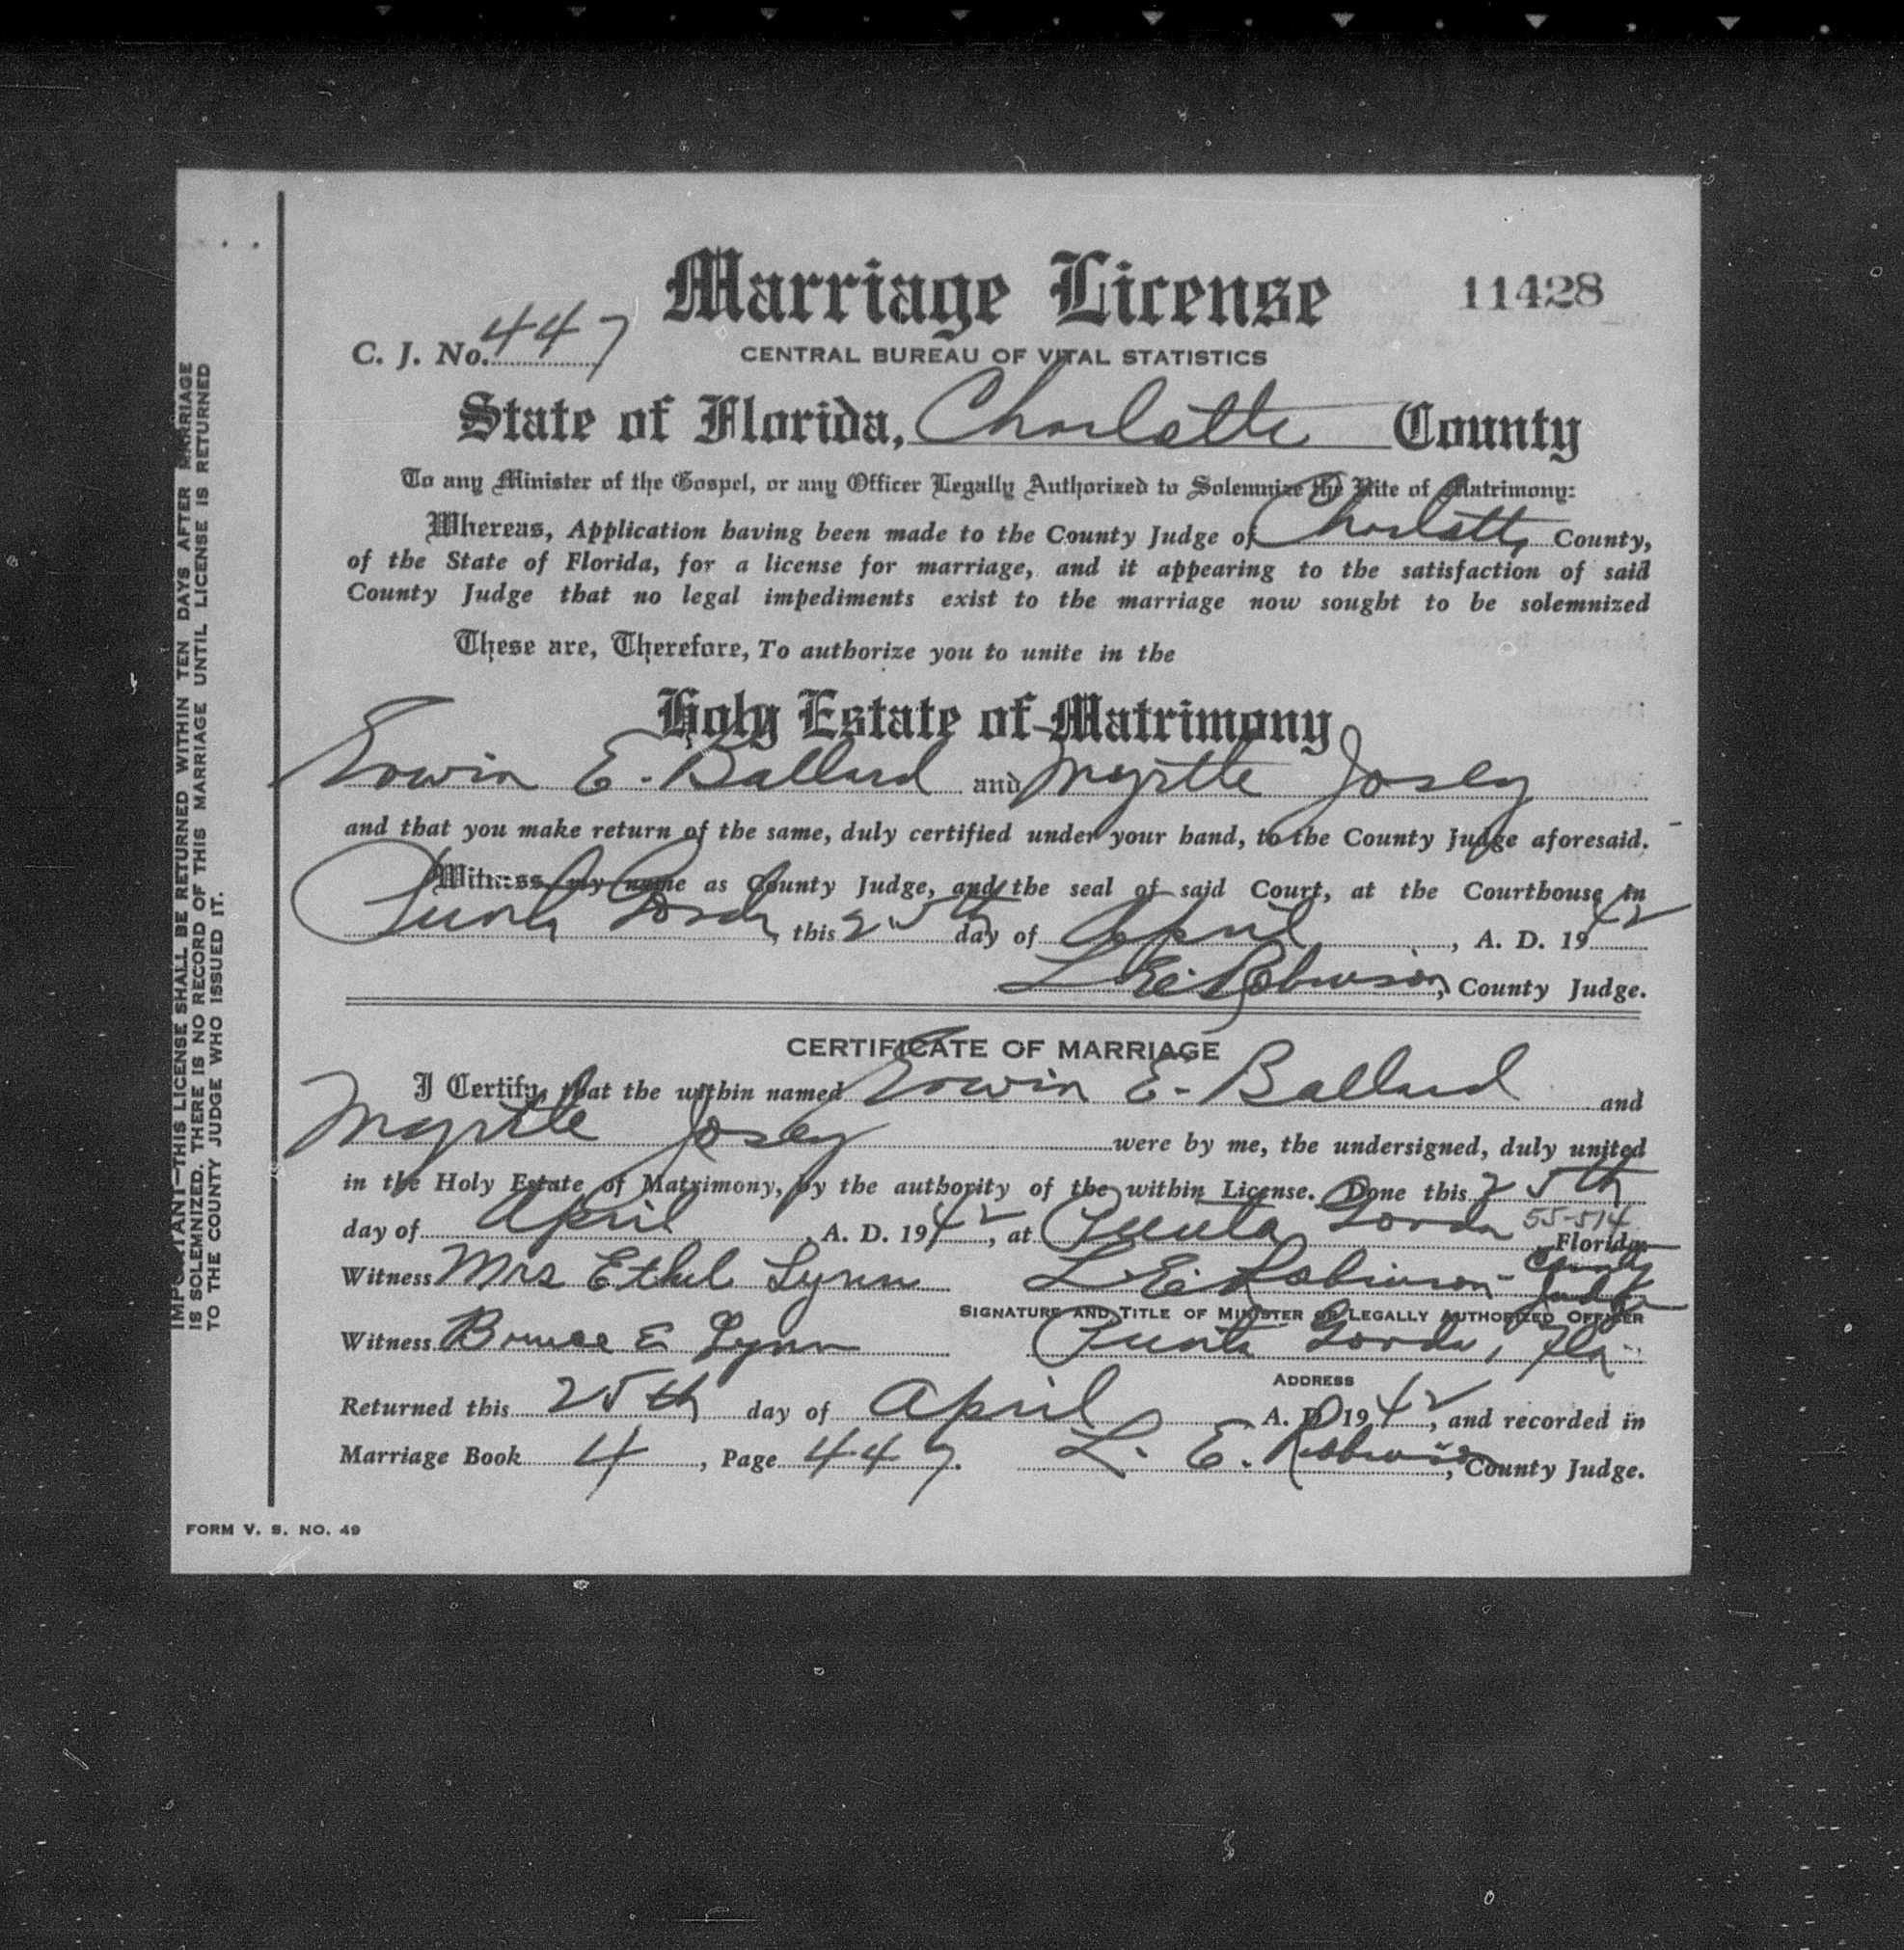 Marriage License 11428
C. J. No. 447
CENTRAL BUREAU OF VITAL STATISTICS
State of Florida, Charlotte County
To any Minister of the Gospel, or any Officer Legally Authorized to Solemnize the Rite of Matrimony:
Whereas, Application having been made to the County Judge of Charlotte County,
of the State of Florida, for a license for marriage, and it appearing to the satisfaction of said
County Judge that no legal impediments exist to the marriage now sought to be solemnized
These are, Therefore, To authorize you to unite in the
Holy Estate of Matrimony
Erwin E. Ballard and Myrtle Josey
and that you make return of the same, duly certified under your hand, to the County Judge aforesaid.
Witness my name as County Judge, and the seal of said Court, at the Courthouse in
Punta Gorda, this 25th day of April, A. D. 1942
L. E. Robinson, County Judge.
CERTIFICATE OF MARRIAGE
I Certify, that the within named Erwin E. Ballard and
Myrtle Josey were by me, the undersigned, duly united
in the Holy Estate of Matrimony, by the authority of the within License. Done this 25th
day of April A. D. 1942, at Punta Gorda 55-514 Florida
Witness Mrs Ethel Lynn L. E. Robinson - County Judge
SIGNATURE AND TITLE OF MINISTER OR LEGALLY AUTHORIZED OFFICER
Witness Bruce E Lynn Punta Gorda, Fla.
ADDRESS
Returned this 25th day of April A. D. 1942, and recorded in
Marriage Book 4, Page 447. L. E. Robinson, County Judge.
FORM V. S. NO. 49
IMPORTANT—THIS LICENSE SHALL BE RETURNED WITHIN TEN DAYS AFTER MARRIAGE
IS SOLEMNIZED. THERE IS NO RECORD OF THIS MARRIAGE UNTIL LICENSE IS RETURNED
TO THE COUNTY JUDGE WHO ISSUED IT.